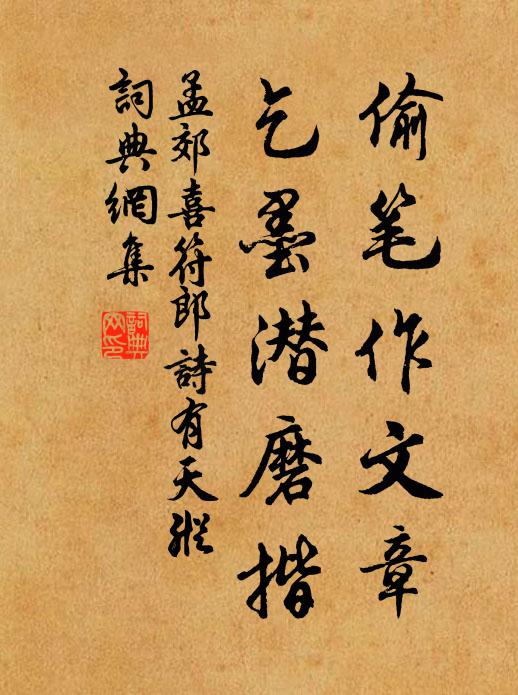 偷笔作文章
乞墨潜磨揩
孟郊喜符郎詩有天縱
詞典網集
詞典網印